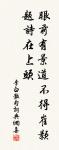 眼前有景道不得崔颢
题诗在上头
李白